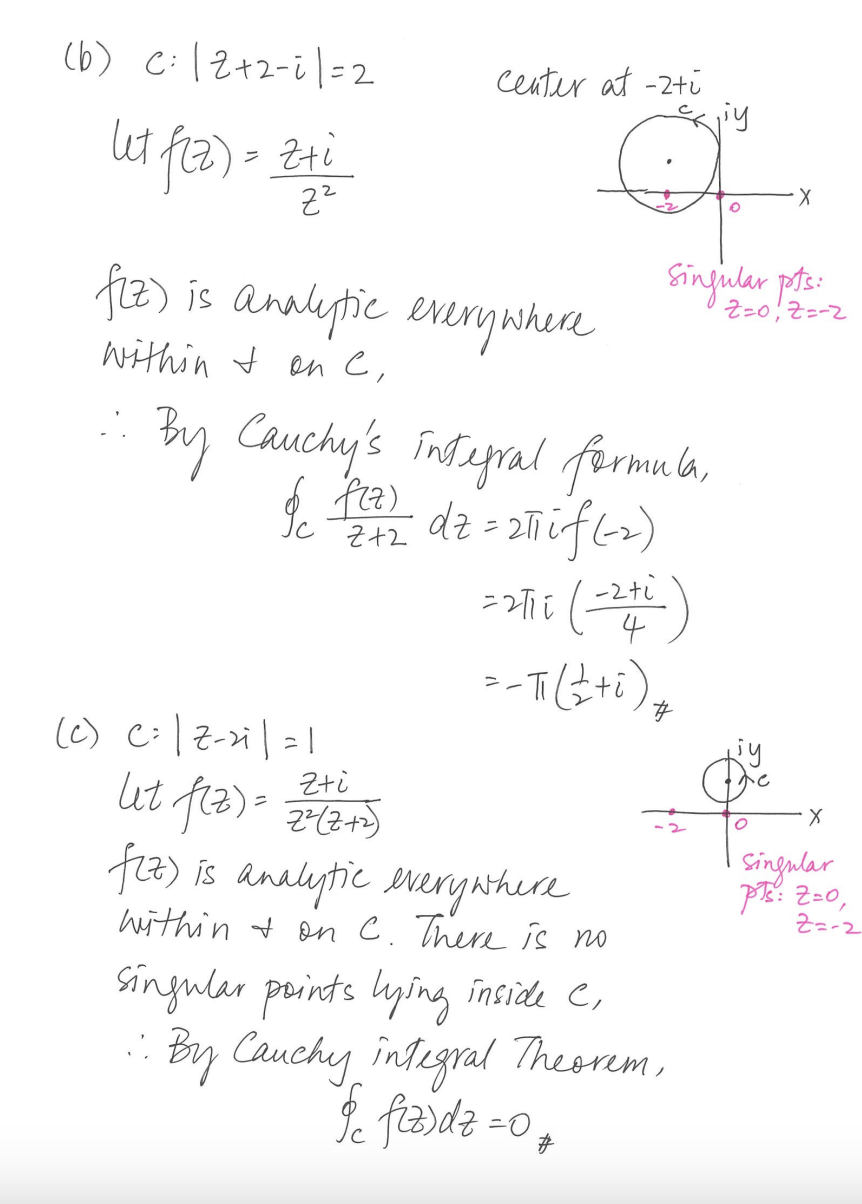 (b) C: |z+2-i|=2
center at -2+i
C
iy
let f(z) = (z+i)/z²
X
-2
0
Singular pts:
z=0, z=-2
f(z) is analytic everywhere
within & on C,
∴ By Cauchy's integral formula,
∮c f(z)/(z+2) dz = 2πi f(-2)
= 2πi ((-2+i)/4)
= -π(1/2+i) #
(c) C: |z-2i|=1
iy
C
let f(z) = (z+i)/(z²(z+2))
X
-2
0
f(z) is analytic everywhere
singular
pts: z=0,
z=-2
within & on C. There is no
singular points lying inside C,
∴ By Cauchy integral Theorem,
∮c f(z)dz = 0 #